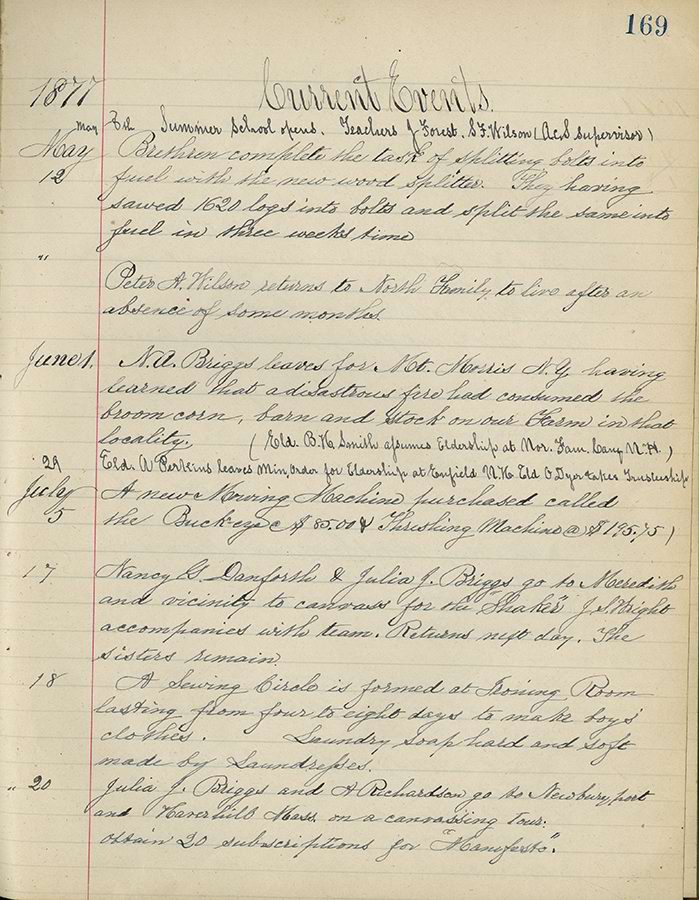 169
Current Events.
1877
May 7th Summer School opens. Teachers J Forest. S.F. Wilson (A.C.S supervisor)
May Brethren complete the task of splitting bolts into
12 fuel with the new wood splitter. They having
sawed 1620 logs into bolts and split the same into
fuel in three weeks time
" Peter H. Wilson returns to North Family to live after an
absence of some months.
June 1. N.A. Briggs leaves for Mt. Morris N.Y. having
learned that a disastrous fire had consumed the
broom corn, barn and stock on our Farm in that
locality. (Eld. B.H. Smith assumes Eldership at Nor. Fam. Cany N.H.)
29 Eld. A Perkins leaves Min. Order for Eldership at Enfield N.H. Eld O Dyer takes Trusteeship
July A new Mowing Machine purchased called
5 the Buckeye @ $85.00 & Threshing Machine @ $195.75)
17 Nancy G. Danforth & Julia J. Briggs go to Meredith
and vicinity to canvass for the "Shaker" J.S. Wright
accompanies with team. Returns next day. The
sisters remain.
18 A Sewing Circle is formed at Ironing Room
lasting from four to eight days to make boys'
clothes. Laundry soap hard and soft
made by Laundresses.
" 20 Julia J. Briggs and A Richardson go to Newburyport
and Haverhill Mass. on a canvassing tour:
obtain 20 subscriptions for "Manifesto".